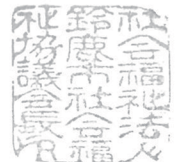 社会福祉法人
鈴鹿市社会福
祉協議会長印